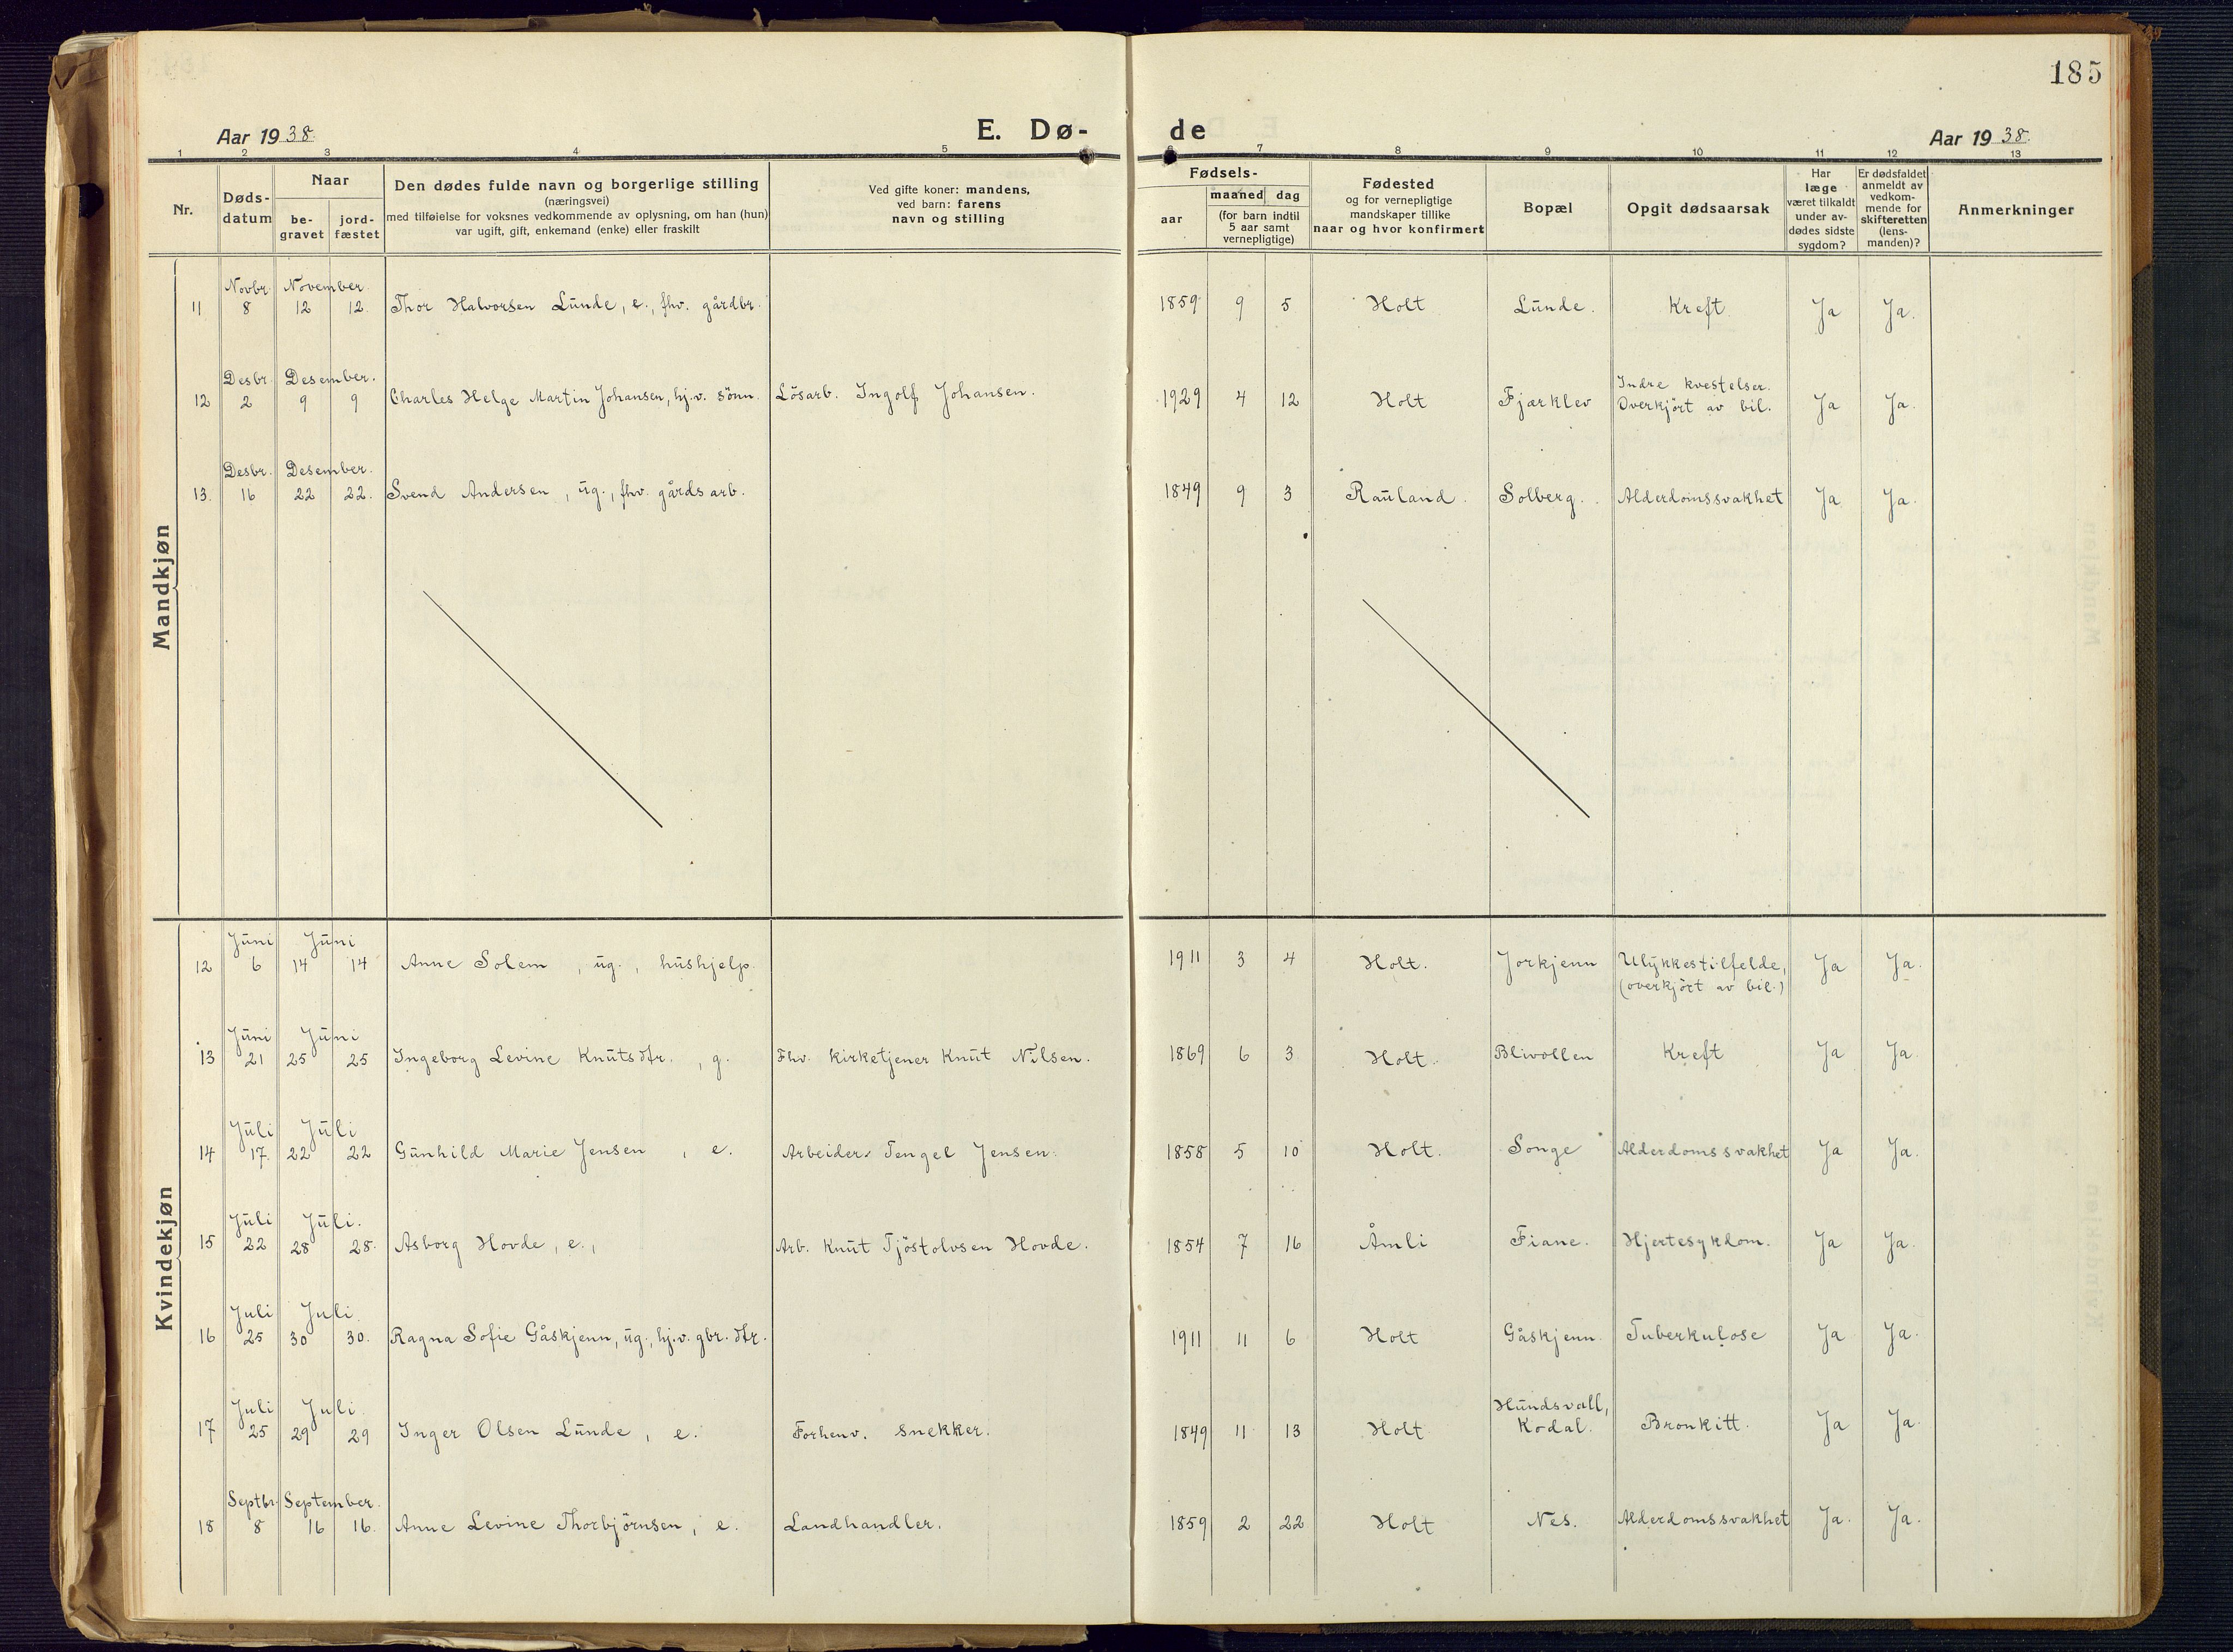 185
Aar 1938.
E. Dø-
de
Aar 1938.
1 2 3 4 5 6 7 8 9 10 11 12 13
Nr.
Døds-
datum
Naar
be-
gravet
jord-
fæstet
Den dødes fulde navn og borgerlige stilling
(næringsvei)
med tilføielse for voksnes vedkommende av oplysning, om han (hun)
var ugift, gift, enkemand (enke) eller fraskilt
Ved gifte koner: mandens,
ved barn: farens
navn og stilling
Fødsels-
aar
maaned dag
(for barn indtil
5 aar samt
vernepligtige)
Fødested
og for vernepligtige
mandskaper tillike
naar og hvor konfirmert
Bopæl
Opgit dødsaarsak
Har
læge
været tilkaldt
under av-
dødes sidste
sygdom?
Er dødsfaldet
anmeldt av
vedkom-
mende for
skifteretten
(lens-
manden)?
Anmerkninger
Mandkjøn
Novbr. November.
11 8 12 12. Thor Halvorsen Lunde, e., fhv. gårdbr. 1859 9 5 Holt Lunde. Kreft Ja Ja.
Desbr. Desember. Indre kvestelser.
12 2 9 9 Charles Helge Martin Johansen, hj.v. sönn. Lösarb. Ingolf Johansen. 1929 4 12 Holt Fjærklev Overkjört av bil. Ja Ja.
Desbr. Desember.
13. 16 22 22. Svend Andersen, ug., fhv. gårdsarb. 1849 9 3 Rauland. Solberg. Alderdomssvakhet Ja Ja.
Kvindekjøn
Juni Juni
12 6 14 14 Anne Solem, ug., hushjelp. 1911 3 4 Holt. Jorkjenn Ulykkestilfelde, Ja Ja.
(overkjört av bil.)
Juni Juni
13 21 25 25 Ingeborg Levine Knutsdtr., g. Fhv. kirketjener Knut Nilsen. 1869 6 3 Holt. Blivollen Kreft Ja Ja.
Juli Juli
14 17. 22 22 Gunhild Marie Jensen, e. Arbeider Tengel Jensen. 1858 5 10 Holt. Songe Alderdomssvakhet Ja Ja.
Juli Juli.
15 22 28 28. Asborg Hovde, e., Arb. Knut Tjöstolvsen Hovde. 1854 7 16 Åmli Fiane. Hjertesykdom. Ja Ja.
Juli Juli.
16 25 30 30. Ragna Sofie Gåskjenn, ug., hj.v. gbr. dtr. 1911 11 6 Holt Gåskjenn. Tuberkulose Ja Ja.
Juli Juli. Hundsvall,
17 25 29 29 Inger Olsen Lunde, e. Forhenv. snekker. 1849 11 13 Holt Kodal. Bronkitt. Ja Ja.
Septbr. September.
18 8 16 16. Anne Levine Thorbjörnsen, e. Landhandler. 1859 2 22 Holt Nes. Alderdomssvakhet Ja. Ja.